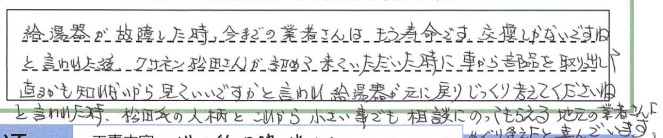 給湯器が故障した時、今までの業者さんは、もう寿命です、交換しかないですね
と言われた後、クサモン松田さんが初めて来ていただいた時に車から部品を取り出して
直るかも知れないから見ていいですかと言われ給湯器が元に戻りじっくり考えてくださいね
と言われた時、松田氏の人柄とこれから小さい事でも相談にのってもらえる地元の業者さんに
と喜んでいます。